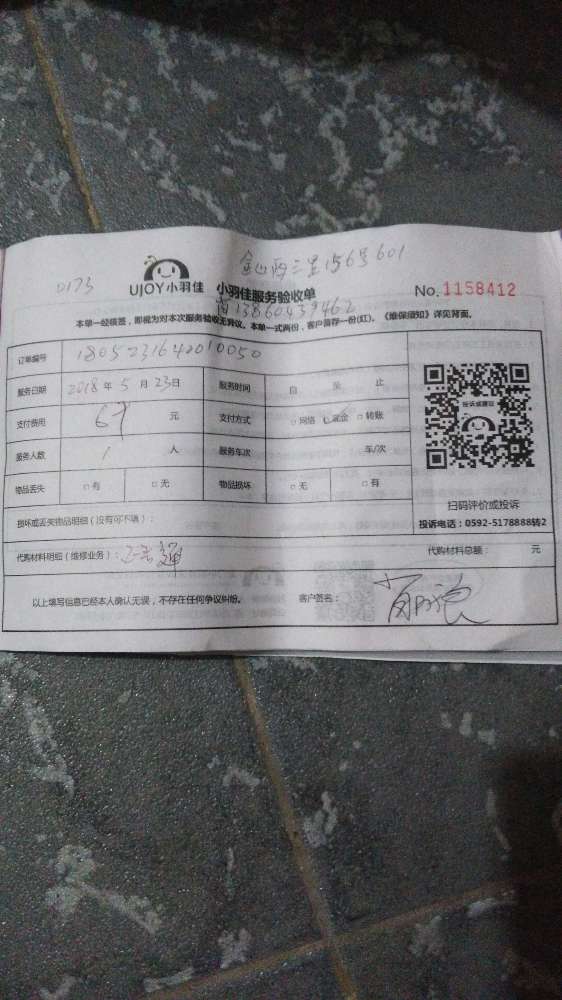 0173
金山西二里156号601
UJOY小羽佳
小羽佳服务验收单
No.1158412
13860439462
本单一经领签，即视为对本次服务验收无异议。本单一式两份，客户留存一份(红)。《维保须知》详见背面。
订单编号 1805231642010050
服务日期 2018 年 5 月 23日 服务时间 自 至 止
支付费用 67 元 支付方式 □网络 □现金 □转账
服务人数 1 人 服务车次 车/次
物品丢失 □有 □无 物品损坏 □无 □有
投诉或建议
扫码评价或投诉
投诉电话：0592-5178888转2
损坏或丢失物品明细（没有可不填）：
代购材料明细（维修业务）： 代购材料总额： 元
以上填写信息已经本人确认无误，不存在任何争议纠纷。 客户签名：